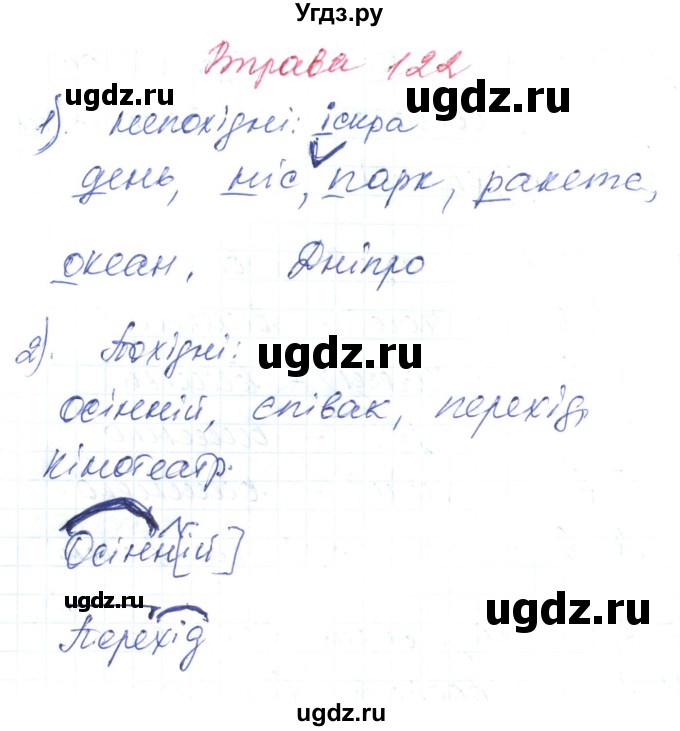 Угдз.ру
Вправа 122
ugdz.ru ugdz.ru
1). Непохідні: іскра
день, ніс, парк, ракета,
океан, Дніпро
2). Похідні:
ugdz.ru
осінній, співак, перехід,
кінотеатр.
Осінн[ій]
ugdz.ru
ugdz.ru
Перехід
ugdz.ru